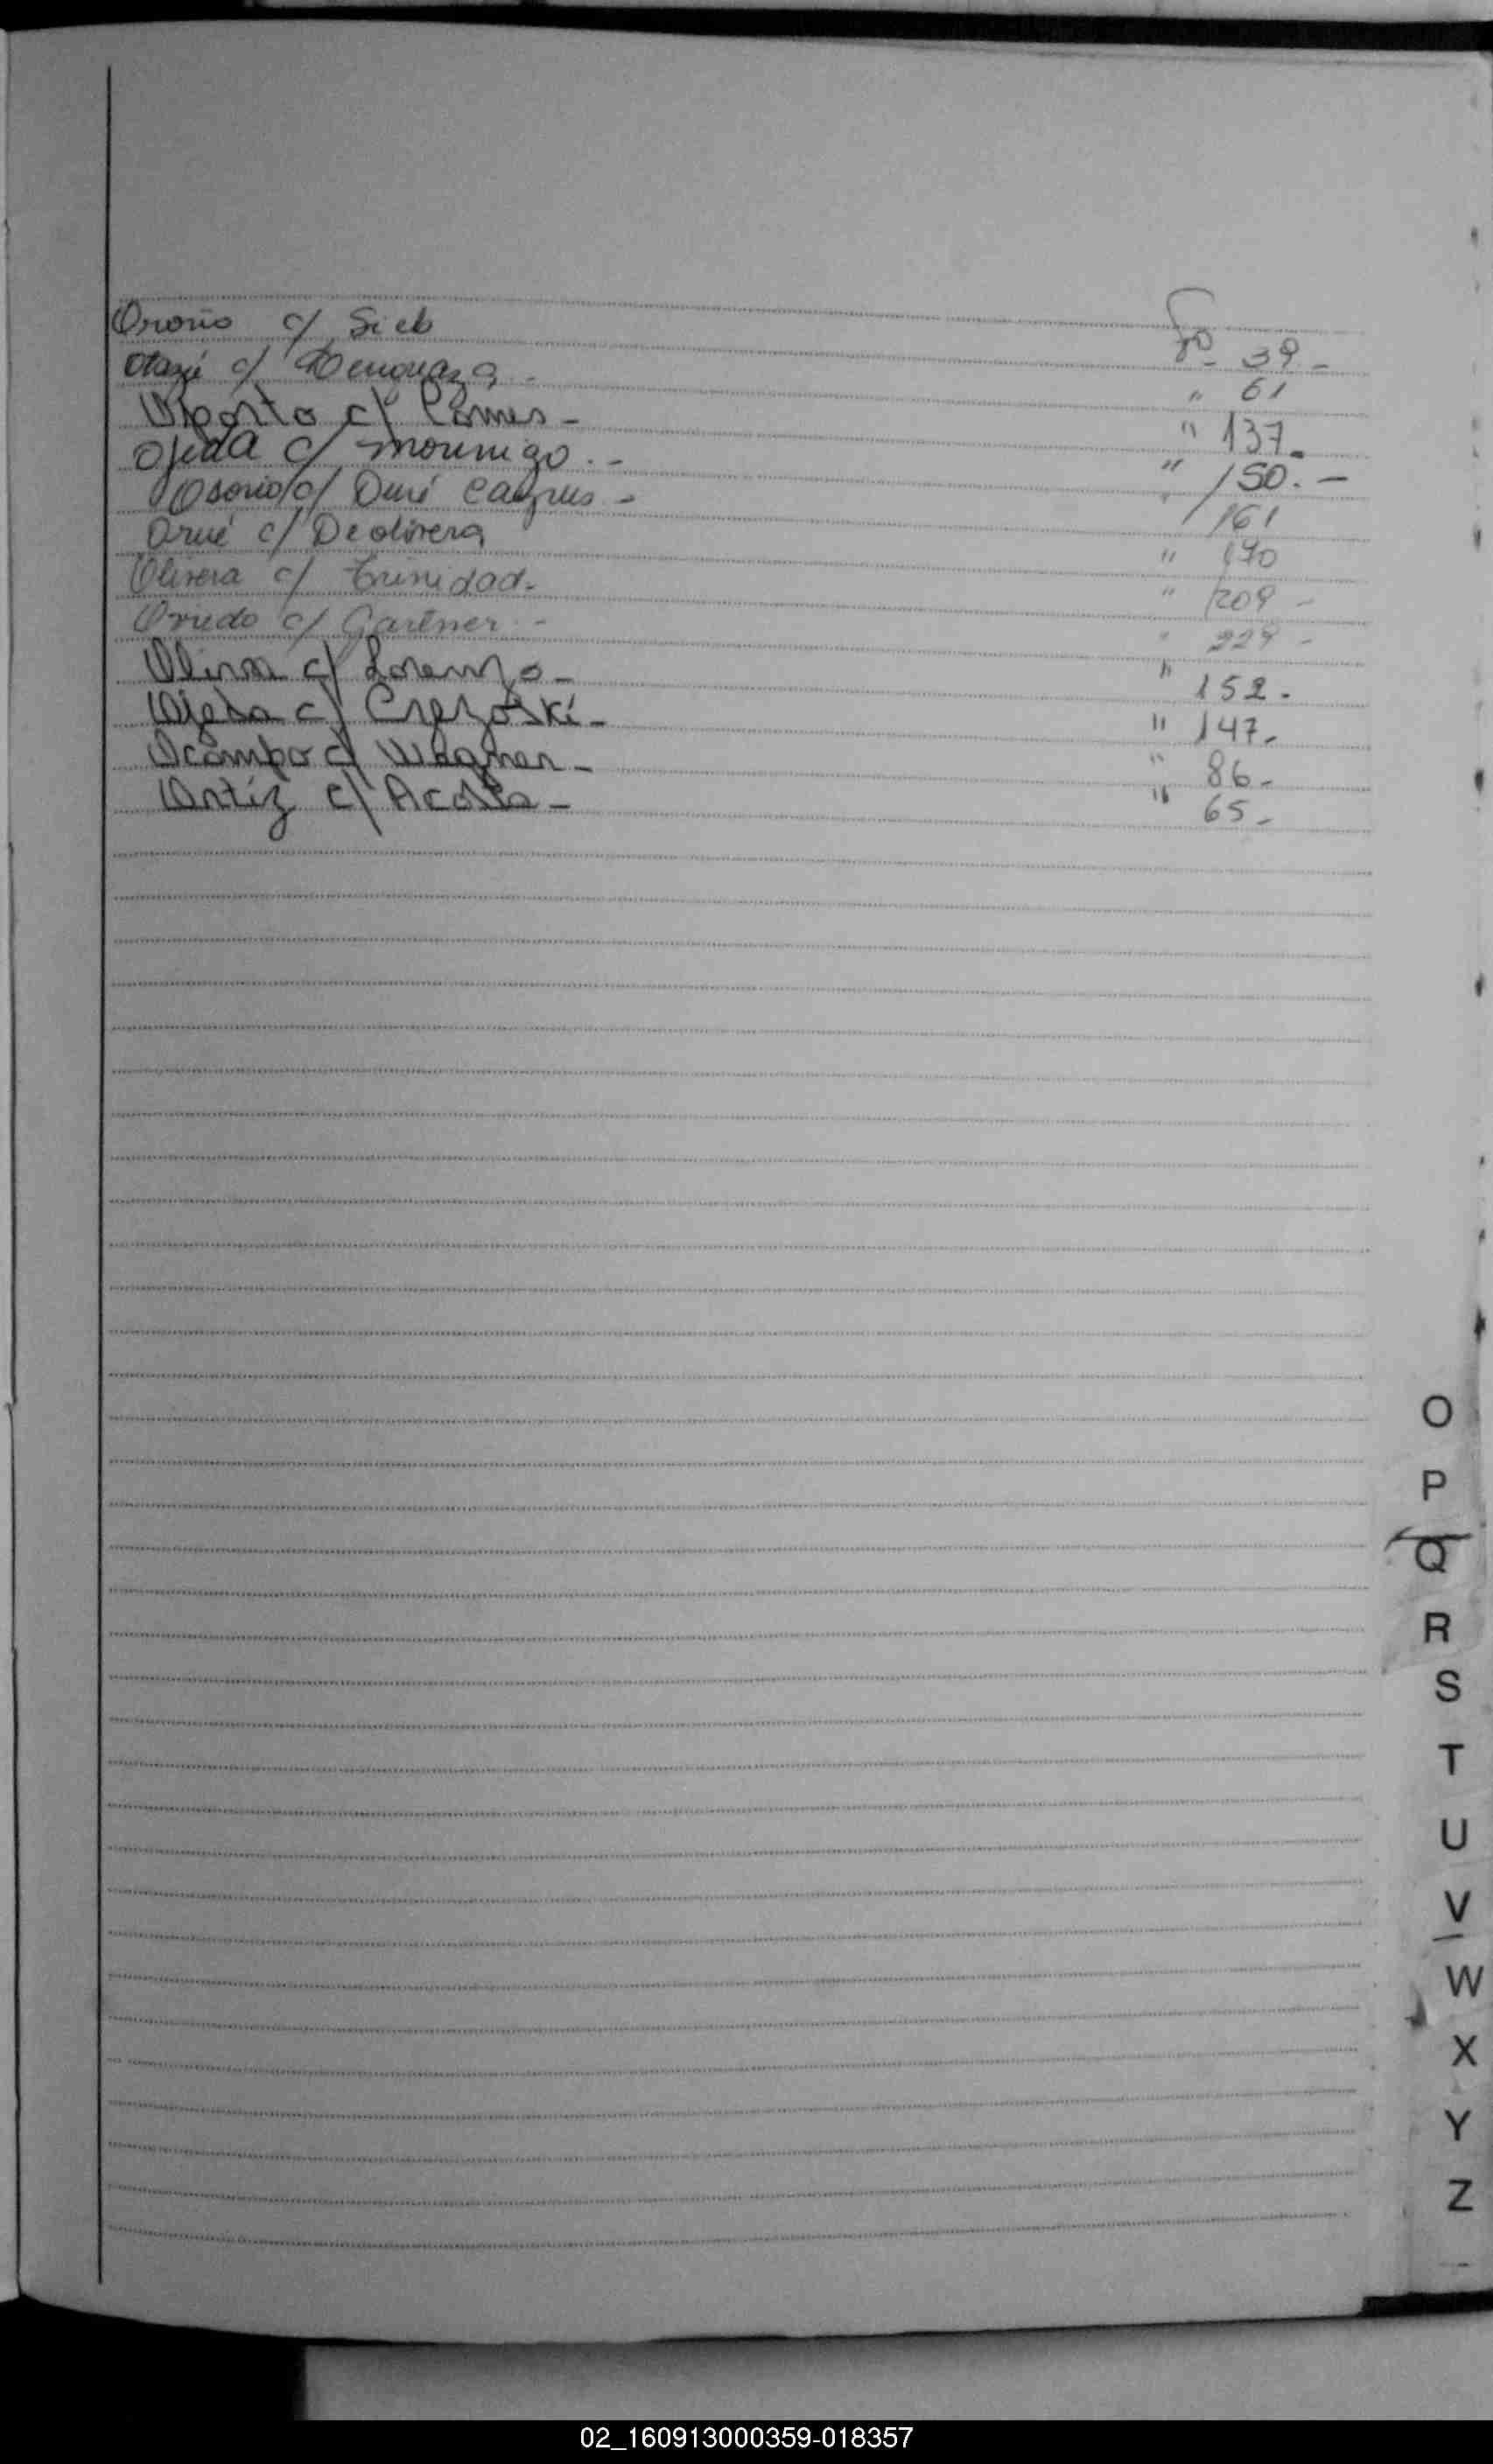 Ororio c/ Sieb Fo. 39.-
Otazú c/ " 61
Oporto c/ Gomes - " 137.
Ojeda c/ Mourinigo. - " 150. -
Osorio c/ Duré - " 161
Orué c/ Deolivera " 170
Olivera c/ Trinidad. " 209 -
Oviedo c/ Gartner. - " 229 -
c/ Lorenzo - " 152.
Ojeda c/ - " 147.
Ocampo c/ Wagner - " 86.
Ortíz c/ Acosta - " 65.
O
P
Q
R
S
T
U
V
W
X
Y
Z
02_160913000359-018357